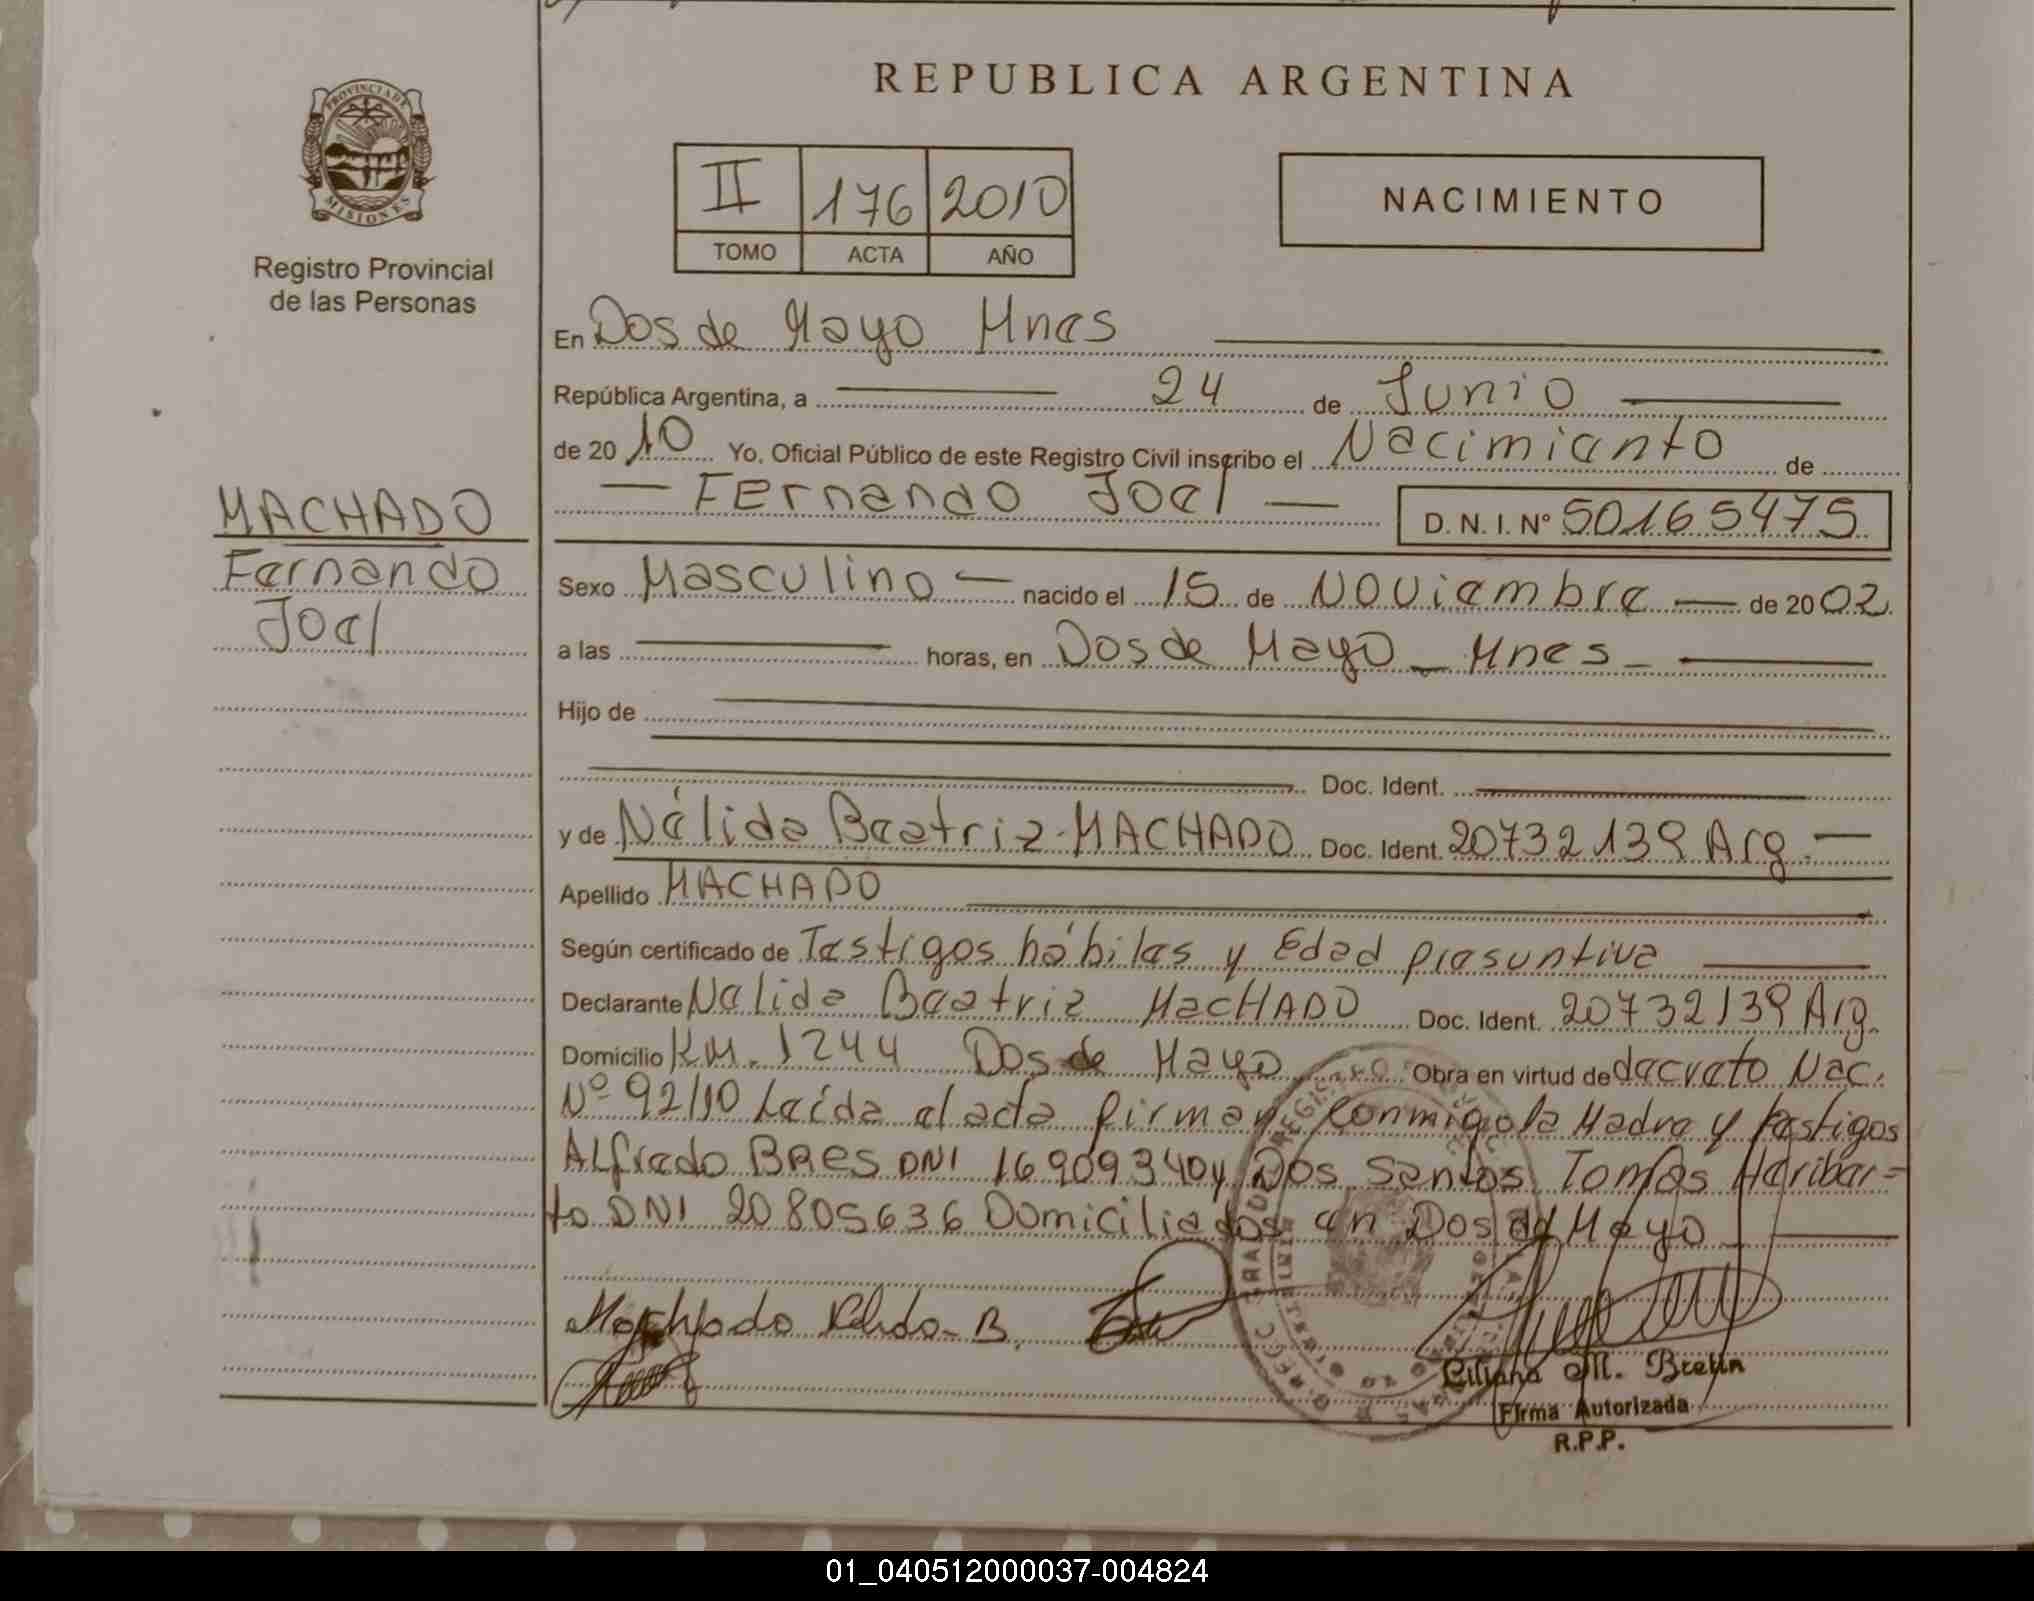 REPUBLICA ARGENTINA
PROVINCIA DE
MISIONES
Registro Provincial
de las Personas
II 176 2010
TOMO ACTA AÑO
NACIMIENTO
En Dos de Mayo Mnes
República Argentina, a 24 de Junio
de 2010 Yo, Oficial Público de este Registro Civil inscribo el Nacimiento de
Fernando Joel D. N. I. Nº 50165475
MACHADO
Fernando
Joel
Sexo Masculino nacido el 15 de Noviembre de 2002
a las horas, en Dos de Mayo Mnes
Hijo de
Doc. Ident.
y de Nélida Beatriz MACHADO Doc. Ident. 20732139 Arg.
Apellido MACHADO
Según certificado de Testigos hábiles y Edad presuntiva
Declarante Nelida Beatriz MacHADO Doc. Ident. 20732139 Arg.
Domicilio KM. 1244 Dos de Mayo Obra en virtud de decreto Nac.
Nº 92/10 Leída el acta firman conmigo la Madre y testigos
Alfredo BAES DNI 16909340 y Dos Santos Tomás Heriber-
to DNI 20805636 Domiciliados en Dos de Mayo
Machado Nelida B.
Liliana M. Brelin
Firma Autorizada
R.P.P.
01_040512000037-004824